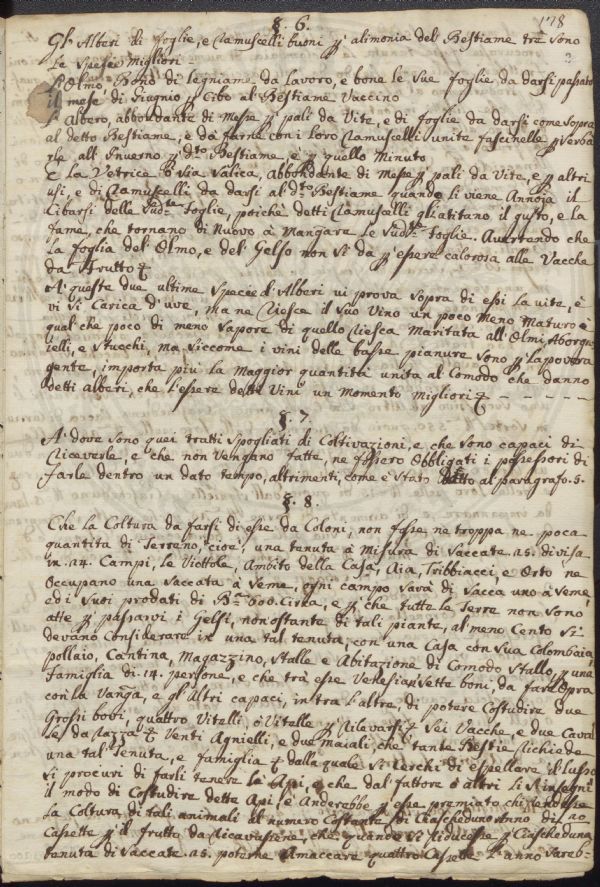 178
§. 6.
Gl' Alberi di foglie, e Ramuscelli buoni p alimonia del Bestiame tre sono
le spesie Migliori
L'Olmo, Bono di legniame da lavoro, e bone le sue foglie da darsi passato
il mese di Giugnio p Cibo al Bestiame Vaccino
L'Albero, abbondante di Messe p pali da Vite, e di foglie da darsi come sopra
al detto Bestiame, e da farne con i loro Ramuscelli unite fascinelle p serba
rle all' Inverno p d.to Bestiame, e p quello Minuto
E La Vetrice ò sia Salica, abbondante di Messe p pali da Vite, e p altri
usi, e di Ramuscelli da darsi al d.to Bestiame quando li viene Annoia il
Cibarsi delle Sud.te foglie, poiche detti Ramuscelli gli alitano il gusto, e la
fame, che tornano di Nuovo à Mangare le Sud.te foglie. Avertendo che
la foglia del Olmo, e del Gelso non si da p essere calorosa alle Vacche
da frutto
A' queste due ultime specie d' Alberi vi prova sopra di essi la vite, è
vi si Carica d'uve, ma ne riesce il suo Vino un poco Meno Maturo è
qual' che poco di meno sapore di quello riesca Maritata all' Olmi, Aborgn
ielli, e stucchi, ma siccome i vini delle basse pianure sono p la povera
gente, importa piu la Maggior quantità unita al Comodo che danno
detti Alberi, che l'essere detti Vini un Momento Migliori
§. 7.
A' dove sono quei tratti spogliati di Coltivazioni, e che sono capaci di
riceverle, e che non vengano fatte, ne fossero obbligati i possessori di
farle dentro un dato tempo, altrimenti, come è stato Detto al paragrafo. 5.
§. 8.
Che la Coltura da farsi di esse da Coloni, non fosse ne troppa ne poca
quantita di Terreno, cioè, una tenuta à Misura di Saccate 15. divisa
in 14. Campi, le Viottole, Ambito della Casa, Aia, Tribbiacci, e Orto ne
Occupano una Saccata à seme, ogni campo sarà di Sacca uno à seme,
ed i suoi prodati di B.a 600. Circa, e p che tutte le Terre non sono
atte p passarvi i Gelsi, nonostante di tali piante, al meno Cento si
devano Considerare in una tal tenuta, con una Casa con sua Colombaia,
pollaio, Cantina, Magazzino, stalle e Abitazione di Comodo stallo, p una
famiglia di 14. persone, e che trà esse ve ne sian sette boni, da fare Opra
con la Vanga, e gl'altri capaci, in tra l'altre, di potere Costudire due
Grossi bovi, quattro Vitelli, ò Vitelle p rilevarsi Sei Vacche, e due Caval
le da razza Venti Agnielli, e due Maiali, che tante Bestie richiede
una tal Tenuta, e famiglia dalla quale si cerchi di espellare il lusso
si procuri di farli tenere le Api, e che dal fattore ò altri li s'insegni
il modo di Costudire dette Api, e Anderebbe p esse premiato chi rendesse
la Coltura di tali animali al numero Costante di ciascheduno Anno di 20
Cassette p il frutto da ricavarsene, che quando si riducesse p ciascheduna
tenuta di Saccate 15. poterne Amaccare quattro Cassette l'anno sareb=